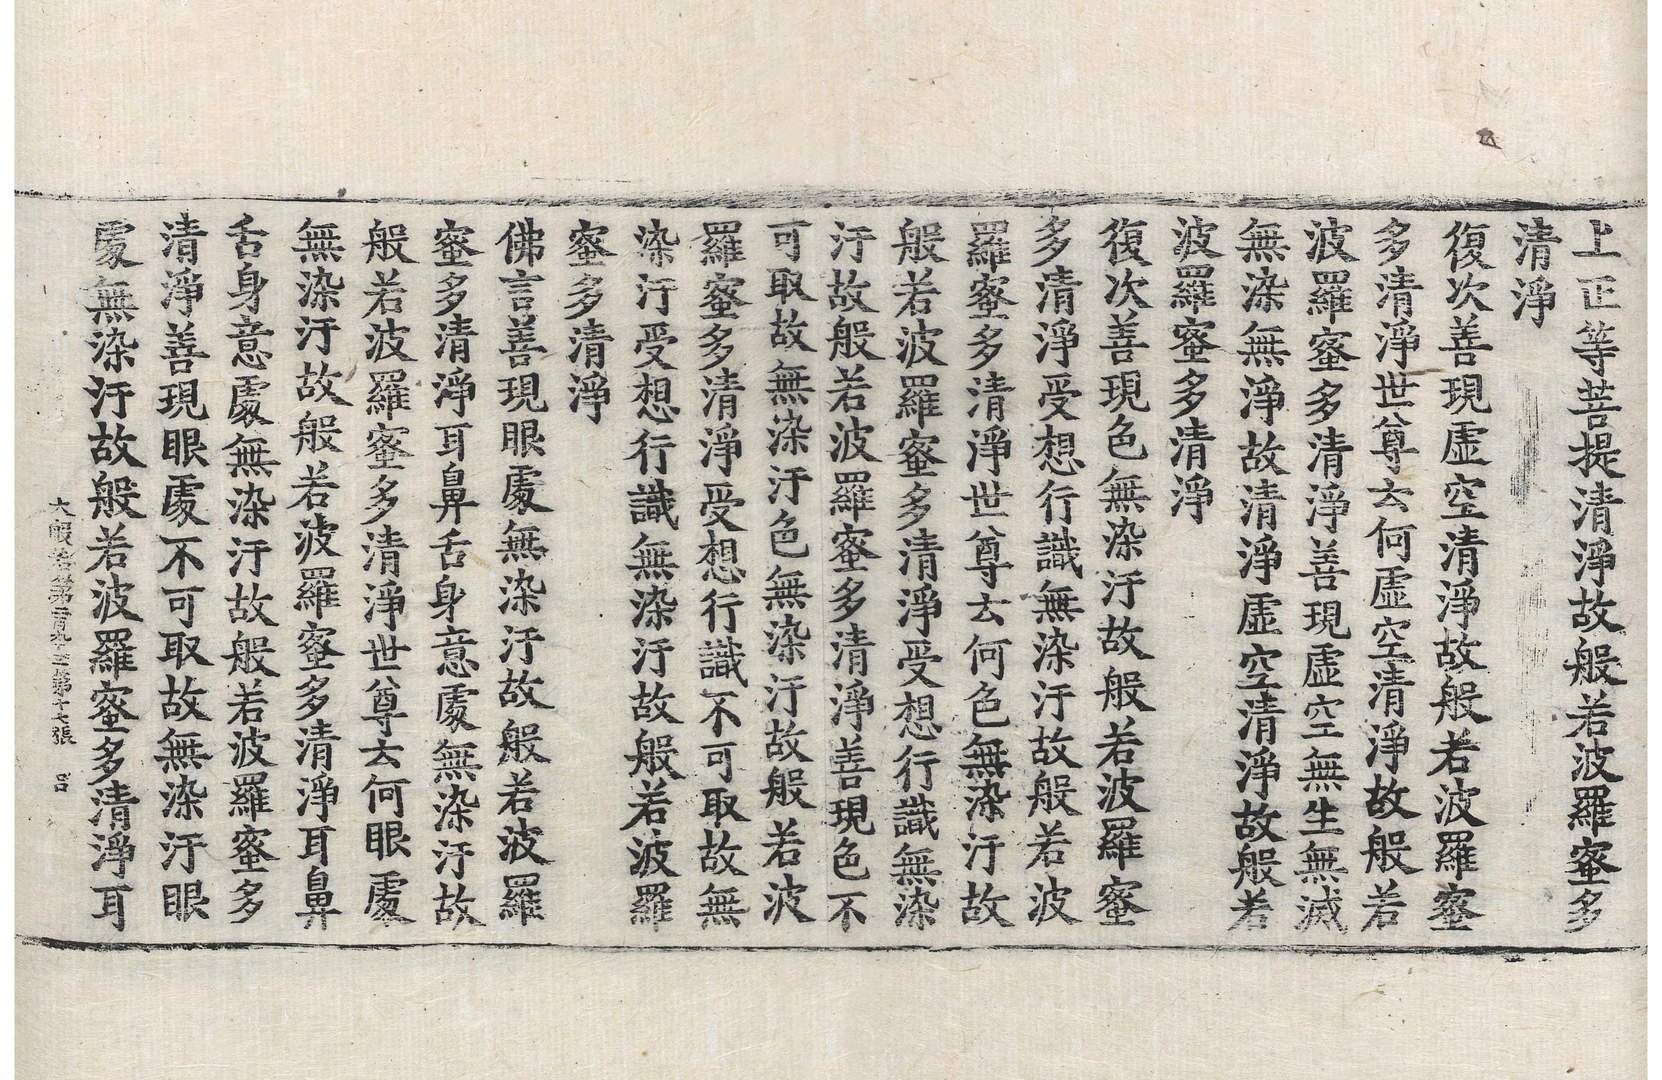 上正等菩提清淨故般若波羅蜜多
清淨
復次善現虛空清淨故般若波羅蜜
多清淨世尊云何虛空清淨故般若
波羅蜜多清淨善現虛空無生無滅
無染無淨故清淨虛空清淨故般若
波羅蜜多清淨
復次善現色無染汙故般若波羅蜜
多清淨受想行識無染汙故般若波
羅蜜多清淨世尊云何色無染汙故
般若波羅蜜多清淨受想行識無染
汙故般若波羅蜜多清淨善現色不
可取故無染汙色無染汙故般若波
羅蜜多清淨受想行識不可取故無
染汙受想行識無染汙故般若波羅
蜜多清淨
佛言善現眼處無染汙故般若波羅
蜜多清淨耳鼻舌身意處無染汙故
般若波羅蜜多清淨世尊云何眼處
無染汙故般若波羅蜜多清淨耳鼻
舌身意處無染汙故般若波羅蜜多
清淨善現眼處不可取故無染汙眼
處無染汙故般若波羅蜜多清淨耳
大般若第二百九十三 第十七張 呂